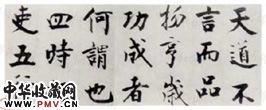 天道不
言而品
物亨歲
功成者
何謂也
四時
吏五
中华收藏网
www.sc001.com.cn